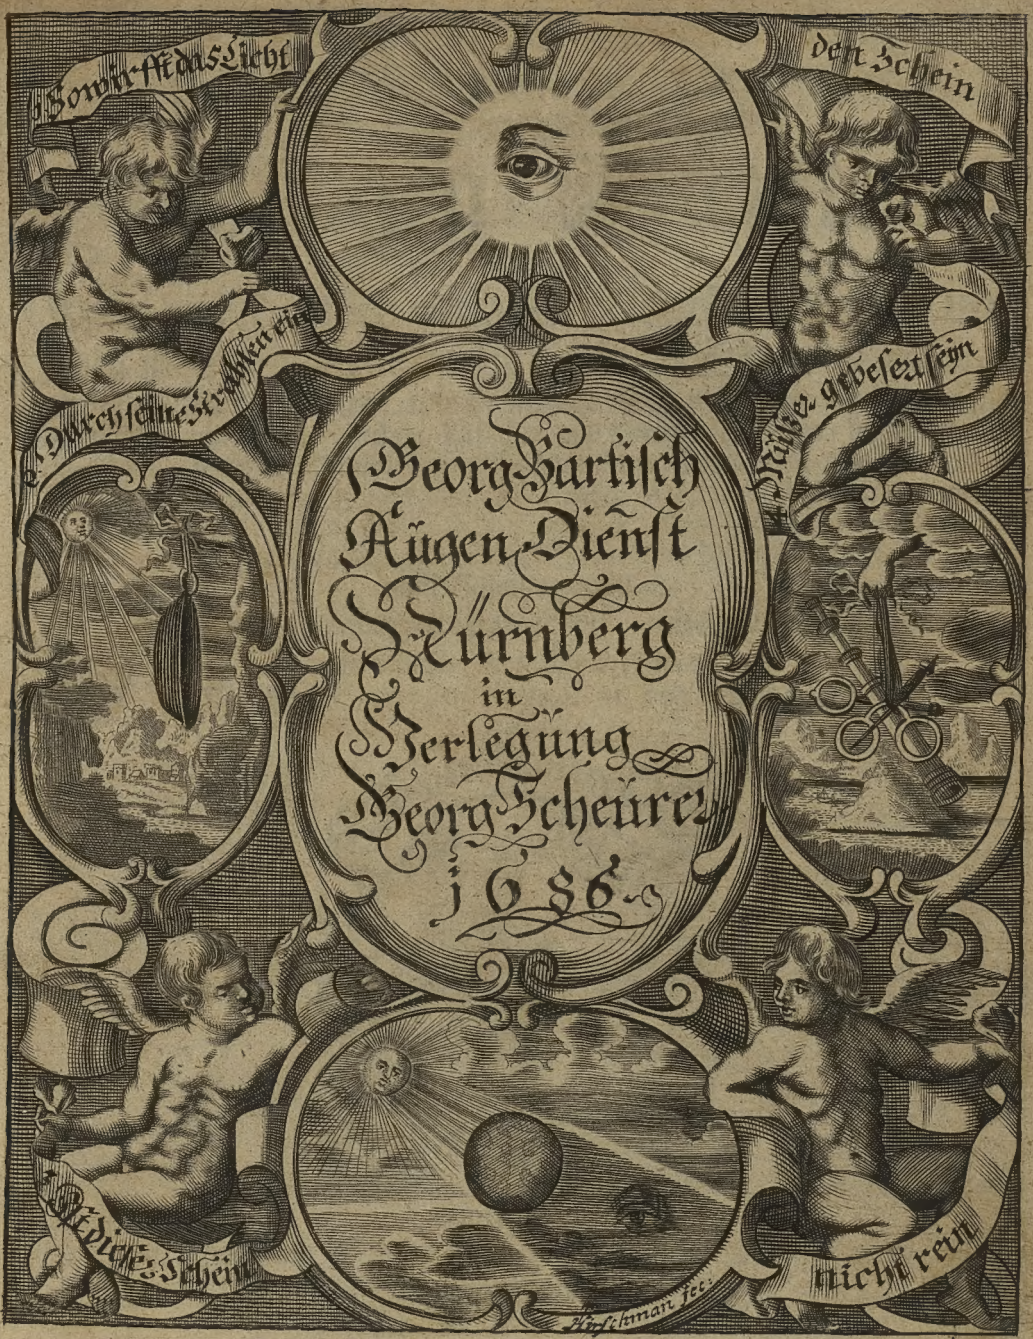 1. So wirfft das Licht
den Schein
2. Durch seine Strahlen ein
4. Müß er gebesert seÿn
Georg Bartisch
Aügen Dienst
Nürnberg
in
Verlegüng
Georg Scheürer
1686.
Ist dicker Schein
nicht rein
Hirschman fec: